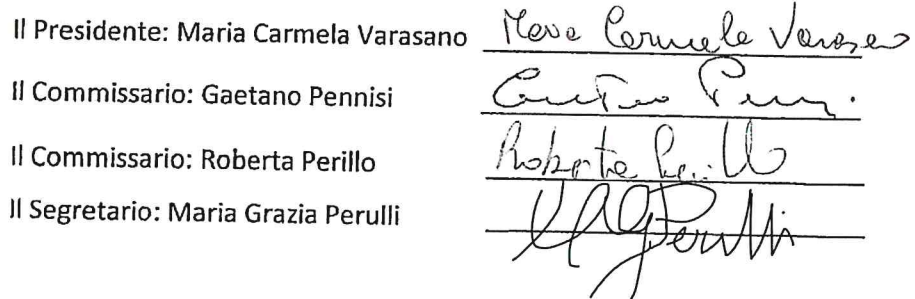 Il Presidente: Maria Carmela Varasano Maria Carmela Varasano
Il Commissario: Gaetano Pennisi Gaetano Penn.
Il Commissario: Roberta Perillo Roberta Perillo
Il Segretario: Maria Grazia Perulli MGPerulli